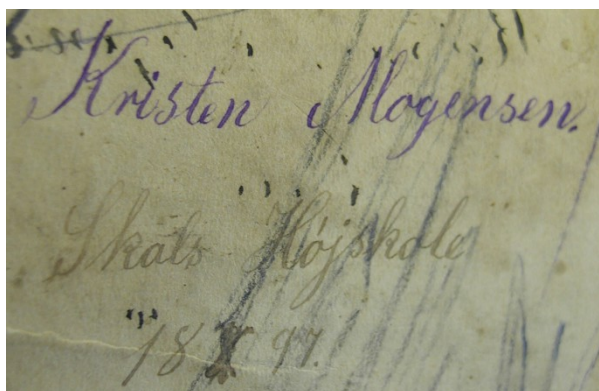 Kristen Mogensen.
Skals Højskole
18 X 97.